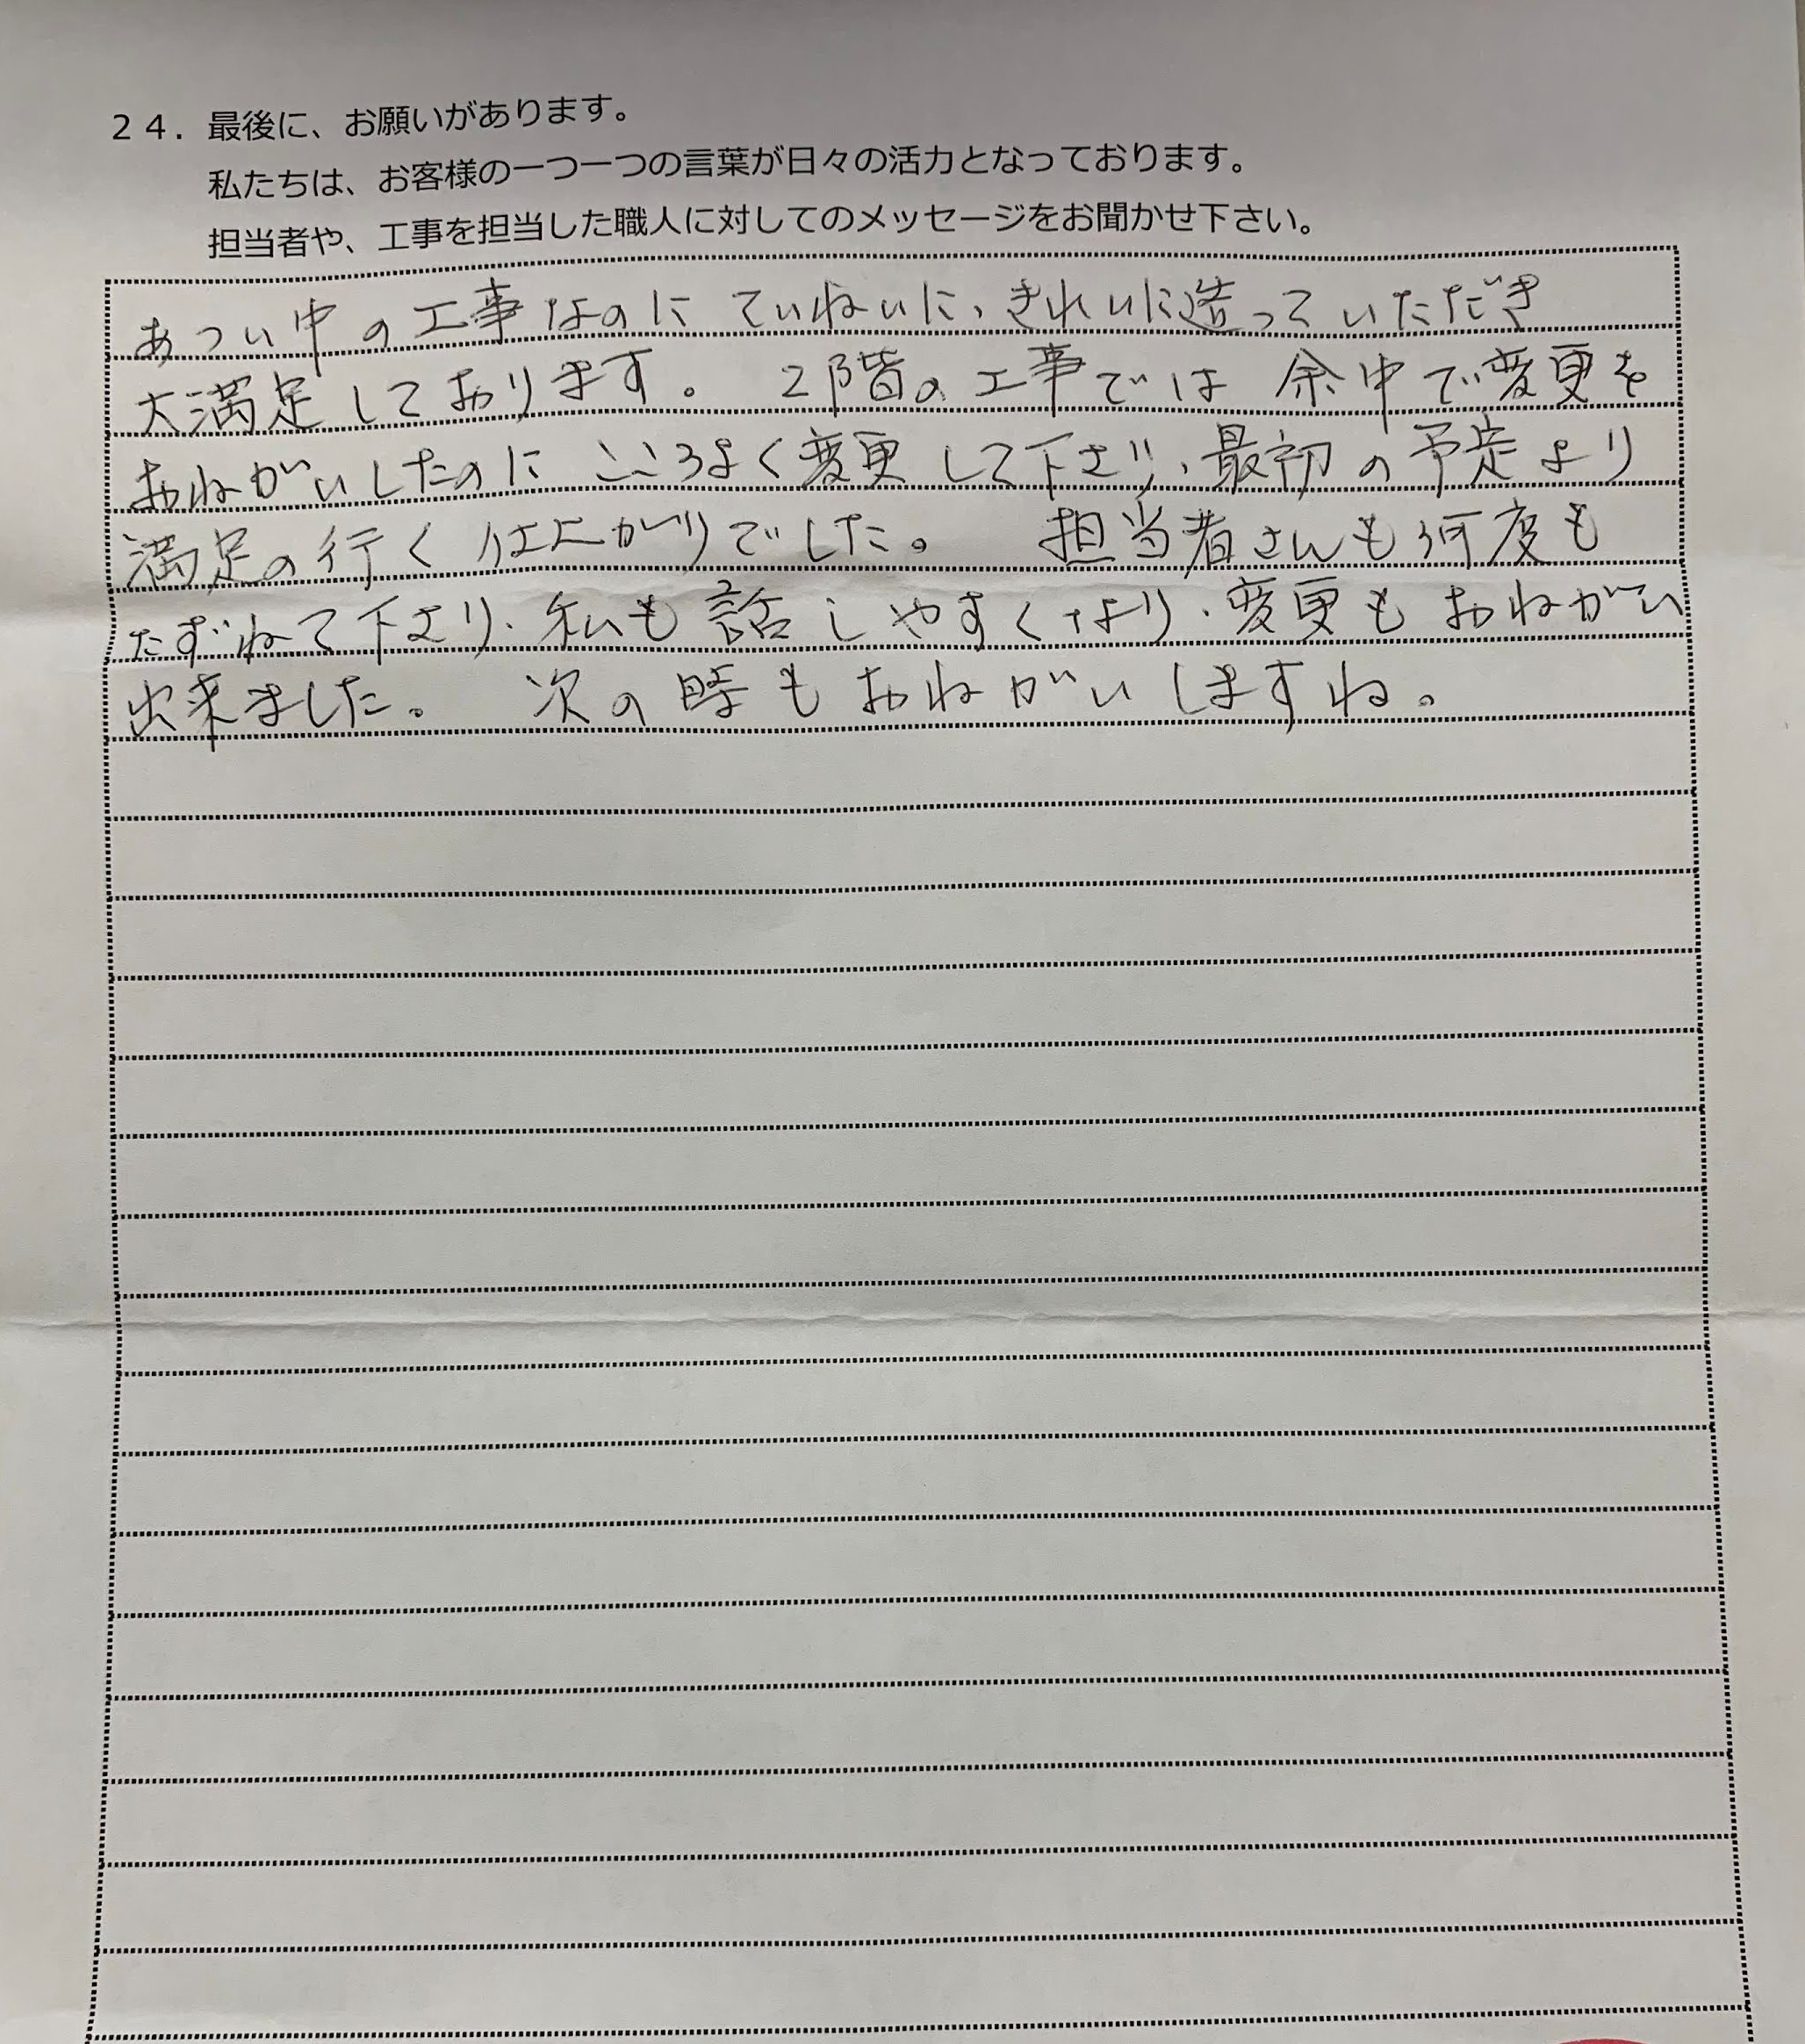 ２４．最後に、お願いがあります。
私たちは、お客様の一つ一つの言葉が日々の活力となっております。
担当者や、工事を担当した職人に対してのメッセージをお聞かせ下さい。
あつい中の工事なのに ていねいに、きれいに造っていただき
大満足しております。 2階の工事では 余中で変更を
おねがいしたのに こころよく変更して下さり、最初の予定より
満足の行く仕上がりでした。 担当者さんも何度も
たずねて下さり、私も話しやすくなり、変更もおねがい
出来ました。 次の時もおねがいしますね。